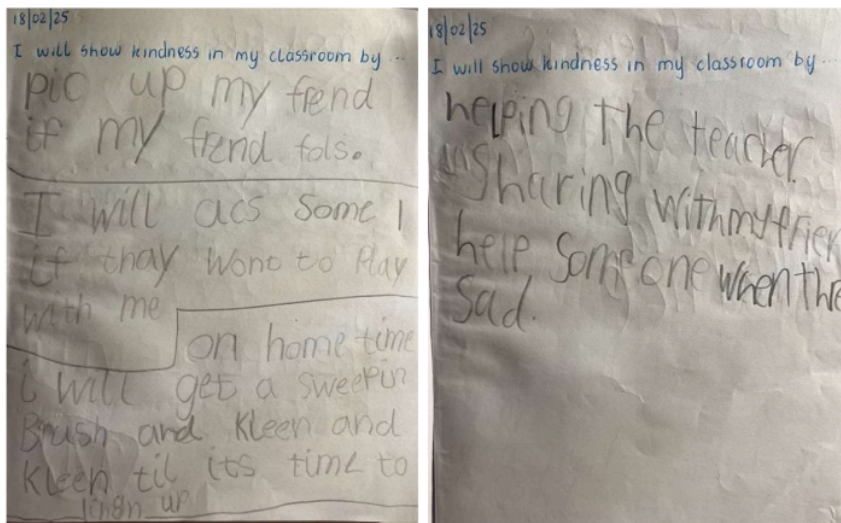 18/02/25
I will show kindness in my classroom by ...
pic up my frend
if my frend fols.
I will acs some 1
if thay wont to Play
with me
on home time
i will get a sweepin
Brush and kleen and
kleen til its time to
lingn up
18/02/25
I will show kindness in my classroom by ...
helping the teacher.
Sharing with my frien
help someone when the
Sad.